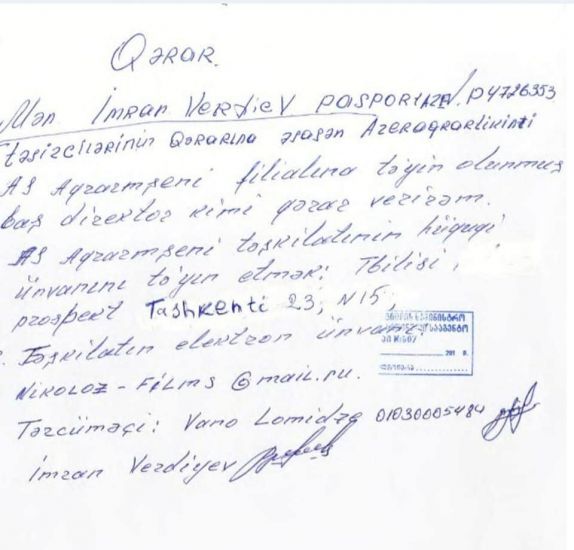 Qərar.
Mən İmran Verdiev pasport AZE N. P4726353
təsizcilərinin Qərarına əsasən Azeraqrarlikinti
AS Aqrarmşeni filialına təyin olunmuş
baş direktor kimi qərar verirəm.
AS Aqrarmşeni təşkilatının hüquqi
ünvanını təyin etmək: Tbilisi,
prospekt Tashkenti 23, N15,
Təşkilatın elektron ünvanı:
Nikoloz-Films@mail.ru.
Tərcüməçi: Vano Lomidze 01030005484
İmran Verdiyev
201